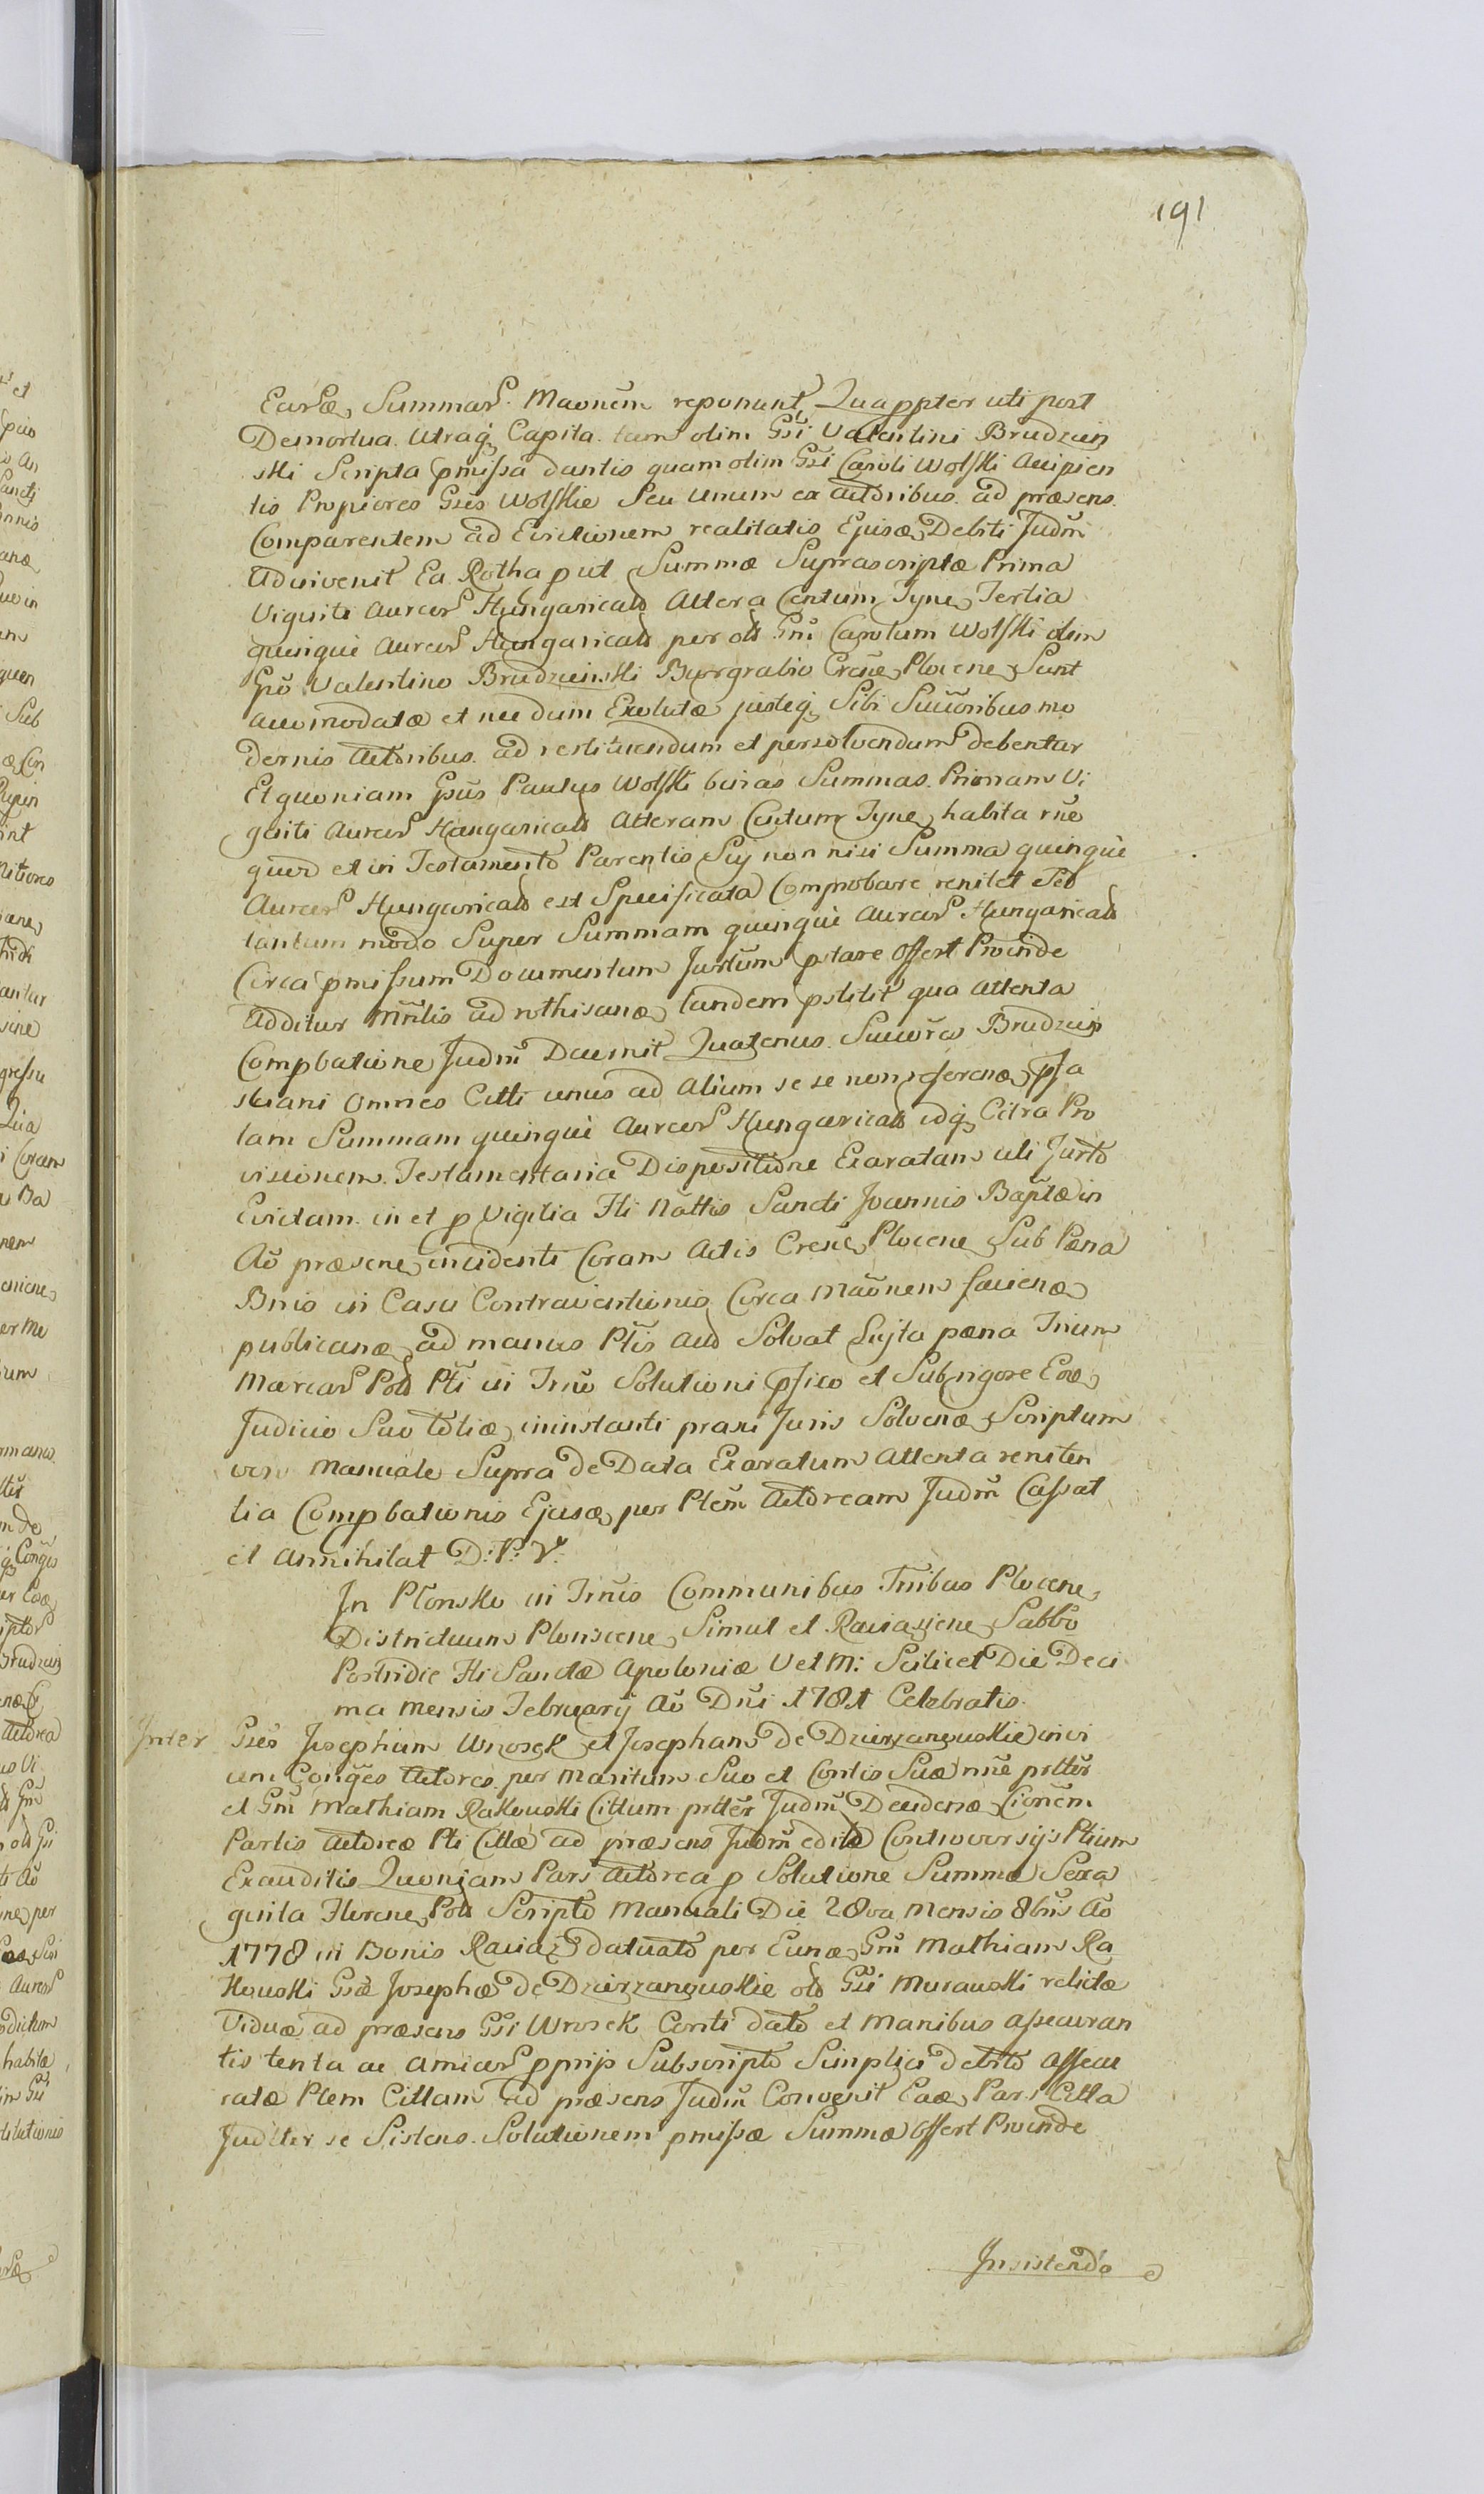 191
Earũ Summar. Maonem reponunt Quappter uti post
Demortua. Utraq Capita. tam olim Gsi Valentini Brudzin
ski Scripta pmissa dantis quam olim Gsi Caroli Wolski Accipien
tis Propiores Gses Wolskie Seu Unum ex Actoribus. ad præsens.
Comparentem ad Evictionem realitatis Ejusæ Debiti Judm
Adinvenit Ea Rotha put Summæ Suprascriptæ Prima
Viginti Aureor Hungarical Altera Centum Tyne Tertia
quinque Aureor Hungarical per olb Gm Carolum Wolski olim
Gso Valentino Brudzinski Burgrabio Crsne Plocene Sunt
accomodatæ et nec dum Exolutæ justeq Sibi Succoribus mo
dernis Actoribus. ad restituendum et persolvendum debentur
Et quoniam Gsus Paulus Wolski binas Summas. Primam Vi
ginti Aureor Hungarical Alteram Centum Tyne habita rne
quod et in Testamento Parentis Sui non nisi Summa quinque
Aureor Hungarical est Specificata Comprobare renitet Sed
tantum modo Super Summam quinque Aureor Hungarical
Circa pmissum Documentum Jurtum pstare Offert Proinde
Additur Mnlis ad rothisanæ tandem pstitit qua attenta
Compbatione Judm Decernit Quatenus. Succores Brudzin
sciani Omnes Citti unus ad Alium se se non referenæ pfa
tam Summam quinque Aureor Hungarical idq Citra Pro
visionem Testamentaria Dispositione Exaratam uti Jurto
Evictam in et p Vigilia Fti Nattis Sancti Joannis Baptæ in
Ao præsene incidenti Coram Actis Cresne Plocene Sub Pæna
Bnis in Casu Contraventionis Circa Maonem facienæ
publicanæ ad manus Ptis Aud Solvat Lujta pæna Trium
Marcar Pol Pti in Trno Solutioni pfixo et Sub rigore Exæ
Judicio Suo toties in instanti praxi Juris Solvenæ Scriptum
vero Manuale Supra de Data Exaratum Attenta reniten
tia Compbationis Ejusæ per Ptem Actoream Judm Cassat
et Annihilat D: P: V:
In Płonsko in Trnis Communibus Tnibus Plocene
Districtuum Plonscene Simul et Raciaziene Sabbo
Postridie Fti Sanctæ Apoloniæ V et M: Scilicet Die Deci
ma Mensis February Ao Dni 1781 Celebratis.
Inter Gses Josephum Wnosek et Josepham de Dzierzanowskie invi
cem Conges Actores. per Maritum Suo et Contis Suæ nne prtter
et Gm Mathiam Rakowski Cittum prtter Judm Decidenæ Cionem
Partis Actoreæ Pti Cittæ ad præsens Judm edita Controversys Ptium
Exauditis Quoniam Pars Actorea p Solutione Summæ Sexa
ginta Florene Pol Scripto Manuali Die 28va Mensis 8bris Ao
1778 in Bonis Raciaz datuato per Eunæ Gm Mathiam Ra
kowski Gsæ Josephæ de Dzierzanowskie olb Gsi Murawski relictæ
Viduæ ad præsens Gsi Wnosek Conti dato et Manibus assecuran
tis tenta ac amicor pprijs Subscripto Simplici debito assecu
ratæ Ptem Cittam ad præsens Judm Convenit Eaæ Pars Citta
Juditer se Sistens. Solutionem pmissæ Summæ Offert Proinde
Insistendo